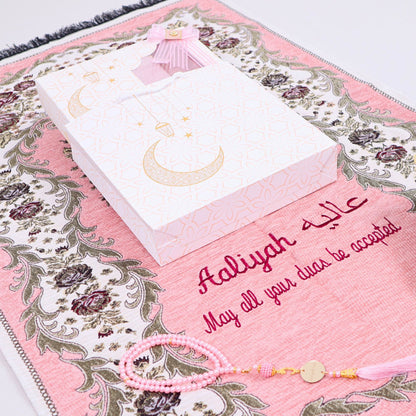 عالية
Aaliyah
May all your duas be accepted